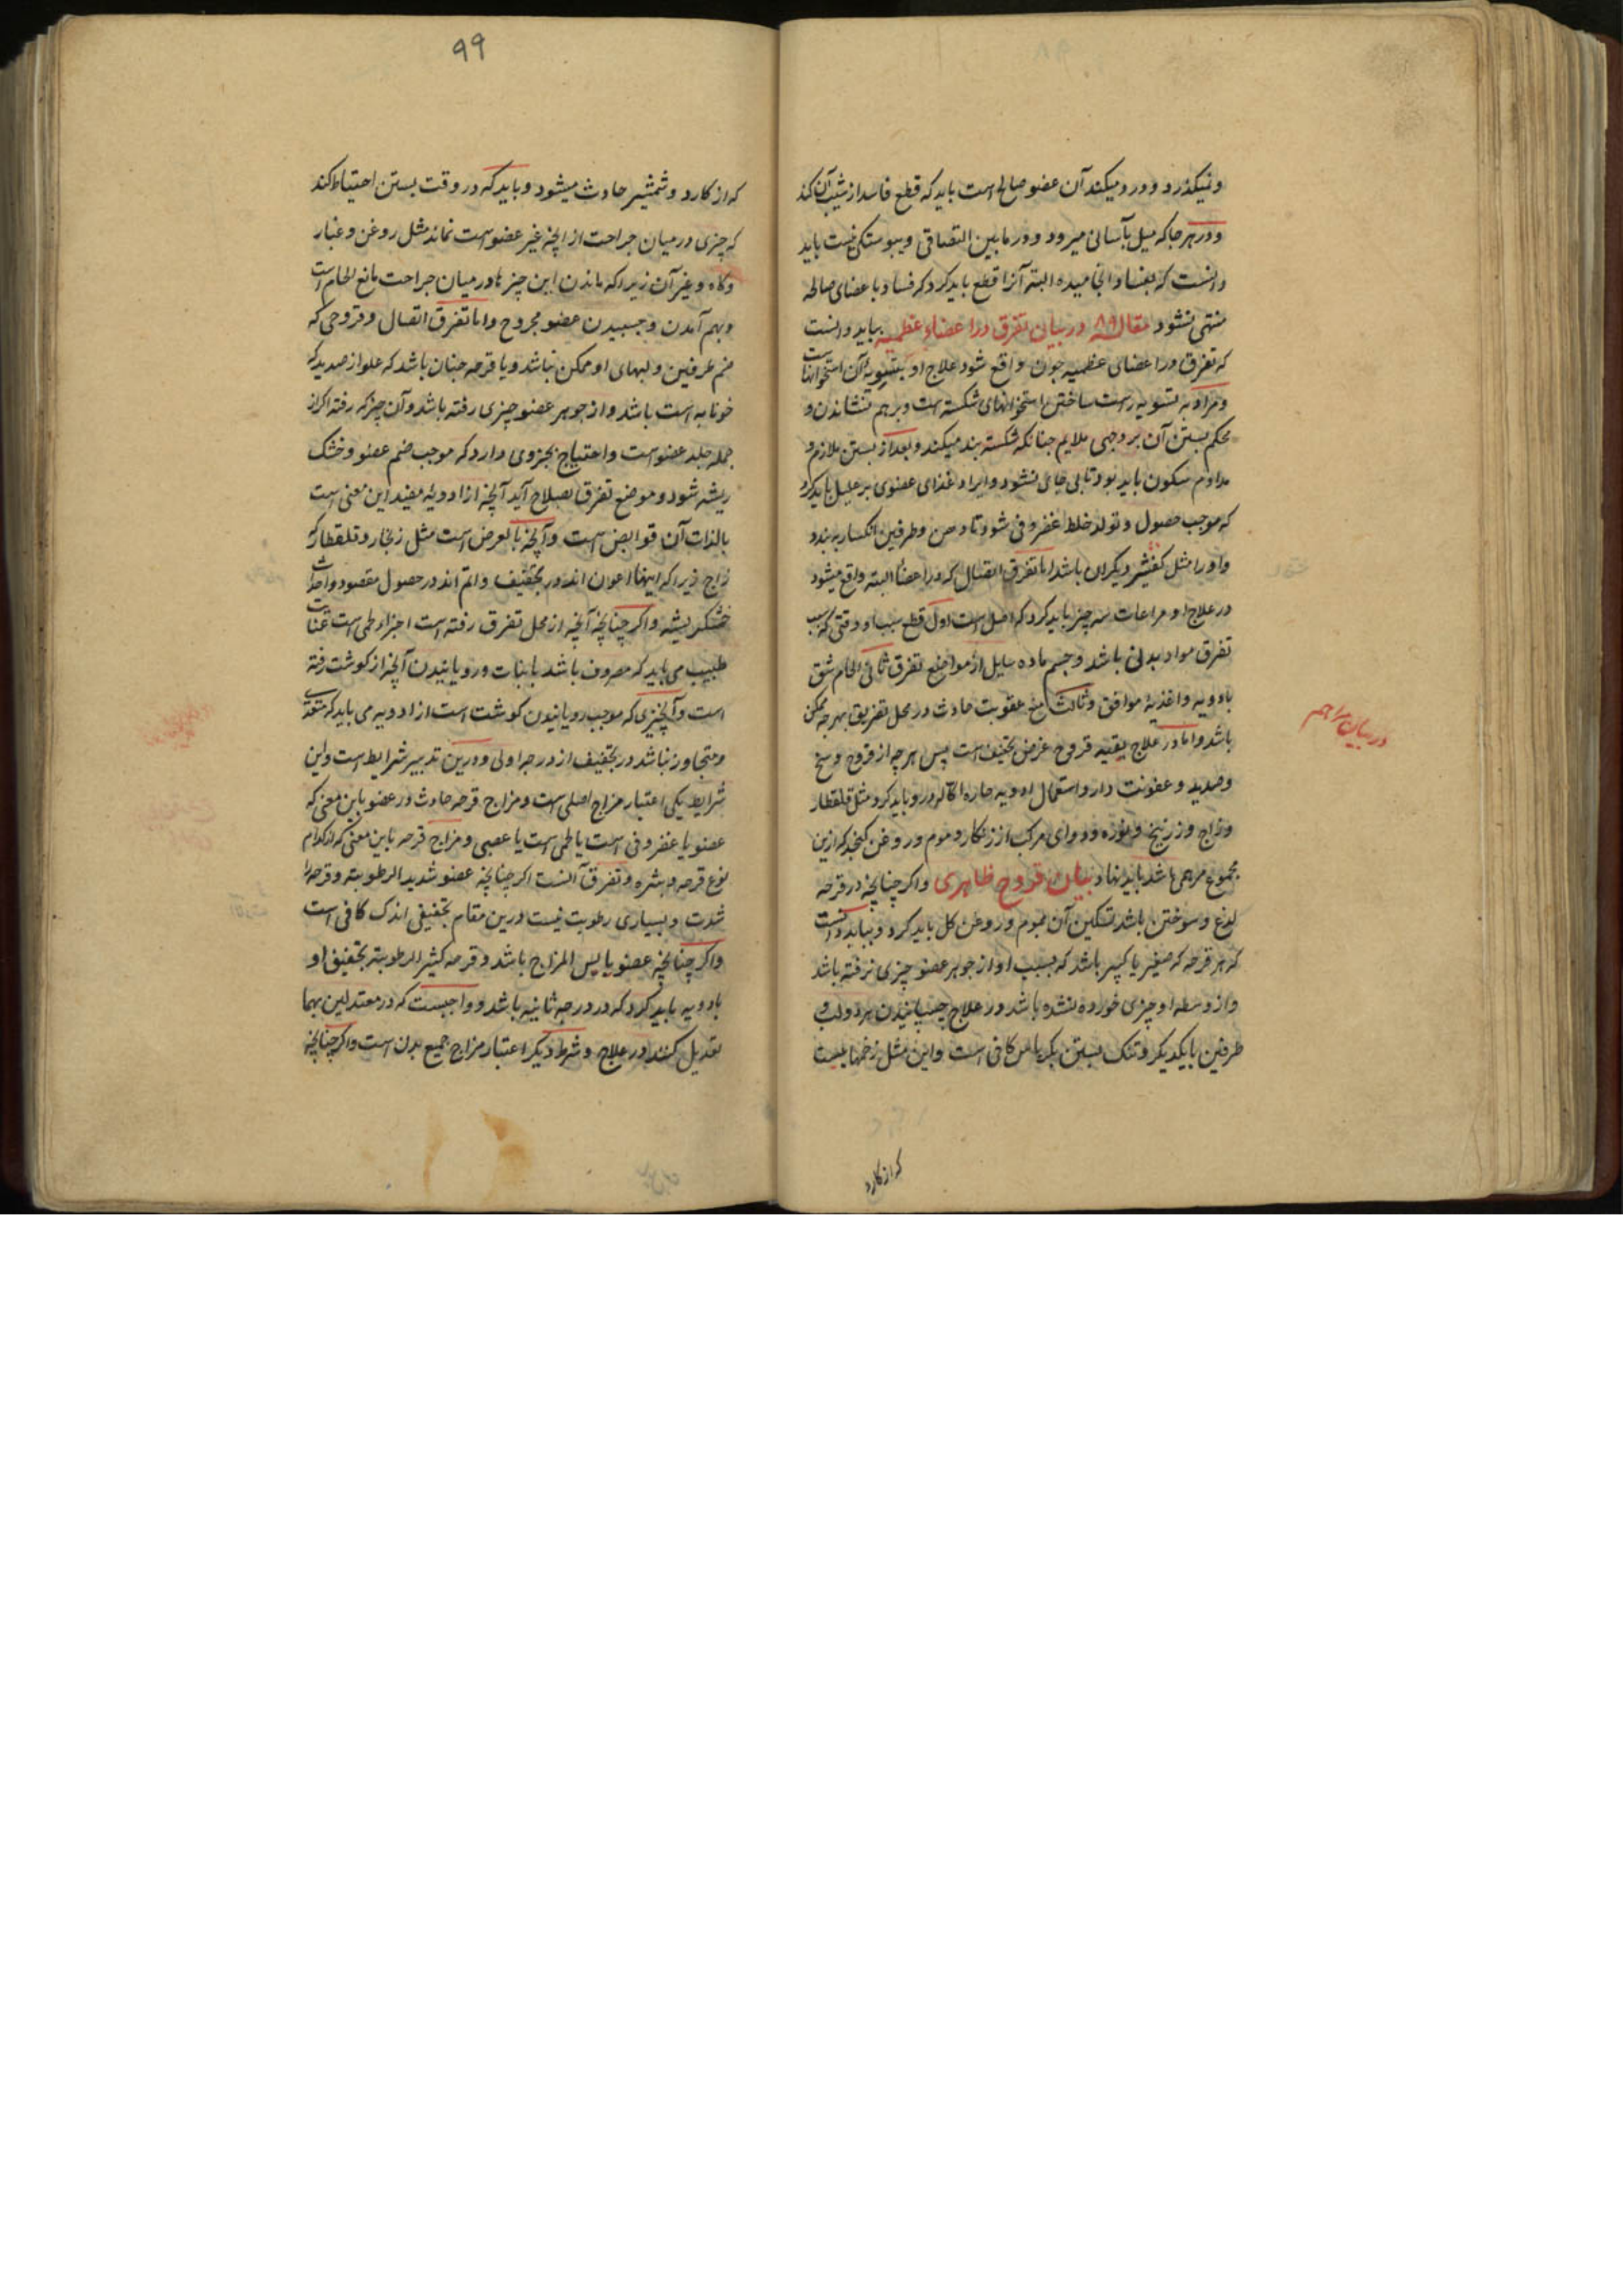 ونمیکذرد و درد میکند آن عضو صالح است باید که قطع فاسد از شیب آن کند
و در هر جا که میل بآسانی میرود و در مابین التصاقی و پیوستکی نیست باید
دانست که بفساد انجامیده البته آنرا قطع باید کرد که فساد با عضای صالحه
منتهی نشود مقاله ۸۹ در بیان تفرق در اعضاء عظمیه بباید دانست
که تفرق در اعضای عظمیه چون واقع شود علاج او بتسویه آن استخوانها ست
و مراد به تسویه راست ساختن استخوانهای شکسته است و بر هم نشاندن و
محکم بستن آن بر وجهی ملایم چنانکه شکسته بند میکند و بعد از بستن ملازم و
مداوم سکون باید بود تا بی جای نشود و ایراد غذای عضوی بر علیل باید کرد
که موجب حصول و تولد خلط غضروفی شود تا دهن و طرفین انکسار به بندد
و او را مثل کفشیر دیکران باشد اما تفرق اتصال که در اعضا البته واقع میشود
در علاج او مراعات سه چیز باید کرد که اصل است اول قطع سبب او وقتی که سبب
تفرق مواد بدنی باشد و حسم ماده سایل از مواضع تفرق ثانی الحام شق
بادویه و اغذیهٔ موافق و ثالث منع عفونت حادث در محل تفریق بهرچه ممکن
باشد و اما در علاج بقیه قروح غرض تجفیف است پس هر چه از قروح وسخ
و صدید و عفونت دارد استعمال ادویه حاره اکاله درو باید کرد مثل قلقطار
و زاج و زرنیخ و نوره و دوای مرکب از زنکار و موم و روغن کنجد که ازین
مجموع مرهمی باشد باید نهاد بیان قروح ظاهری و اکر چنانچه در قرحه
لذع و سوختن باشد تسکین آن بموم و روغن کل باید کرد و بباید دانست
که هر قرحه که صغیر یا کبیر باشد که بسبب او از جوهر عضو چیزی نرفته باشد
و از وسط او چیزی خورده نشده باشد در علاج چسپانیدن هر دو لب و
طرفین بایکدیکر و تنک بستن بکرباس کافی است و این مثل زخمها یست
در بیان مراهم
که از کارد
۹۹
که از کارد و شمشیر حادث میشود و باید که در وقت بستن احتیاط کند
که چیزی در میان جراحت از انچه غیر عضو است نماند مثل روغن و غبار
و کاه و غیر آن زیرا که ماندن این چیزها در میان جراحت مانع الحام است
و بهم آمدن و چسبیدن عضو مجروح و اما تفرق اتصال و قروحی که
ضم طرفین و لبهای او ممکن نباشد و یا قرحه چنان باشد که مملو از صدید که
خونابه است باشد و از جوهر عضو چیزی رفته باشد و آن چیز که رفته اکر از
جمله جلد عضو است و احتیاج بجزوی دارد که موجب ضم عضو و خشک
ریشه شود و موضع تفرق بصلاح آید آنچه از ادویهٔ مفید این معنی است
بالذات آن قوابض است و آنچه بالعرض است مثل زنجار و قلقطار که
زاج زیرا که اینها اعون اند در تجفیف و اتم اند در حصول مقصود و احداث
خشکریشه و اکر چنانچه آنچه از محل تفرق رفته است اجزاء لحمی است عنایت
طبیب می باید که مصروف باشد بانبات و رویانیدن آنچه از کوشت رفته
است و آنچیزی که موجب رویانیدن کوشت است از ادویه می باید که متعدی
و متجاوز نباشد در تجفیف از درجه اولی و درین تدبیر شرایط است و این
شرایط یکی اعتبار مزاج اصلی است و مزاج قرحه حادث در عضو باین معنی که
عضو یا غضروفی است یا لحمی است یا عصبی و مزاج قرحه باین معنی که از کدام
نوع قرحه و بثره و تفرق آنست اکر چنانچه عضو شدید الرطوبته و قرحه را
شدت و بسیاری رطوبت نیست درین مقام تجفیفی اندک کافی است
و اکر چنانچه عضو یابس المزاج باشد و قرحه کثیر الرطوبته تجفیف او
بادویه باید کرد که در درجه ثانیه باشد و واجبست که در معتدلین بهما
تعدیل کنند در علاج و شرط دیکر اعتبار مزاج جمیع بدن است و اکر چنانچه